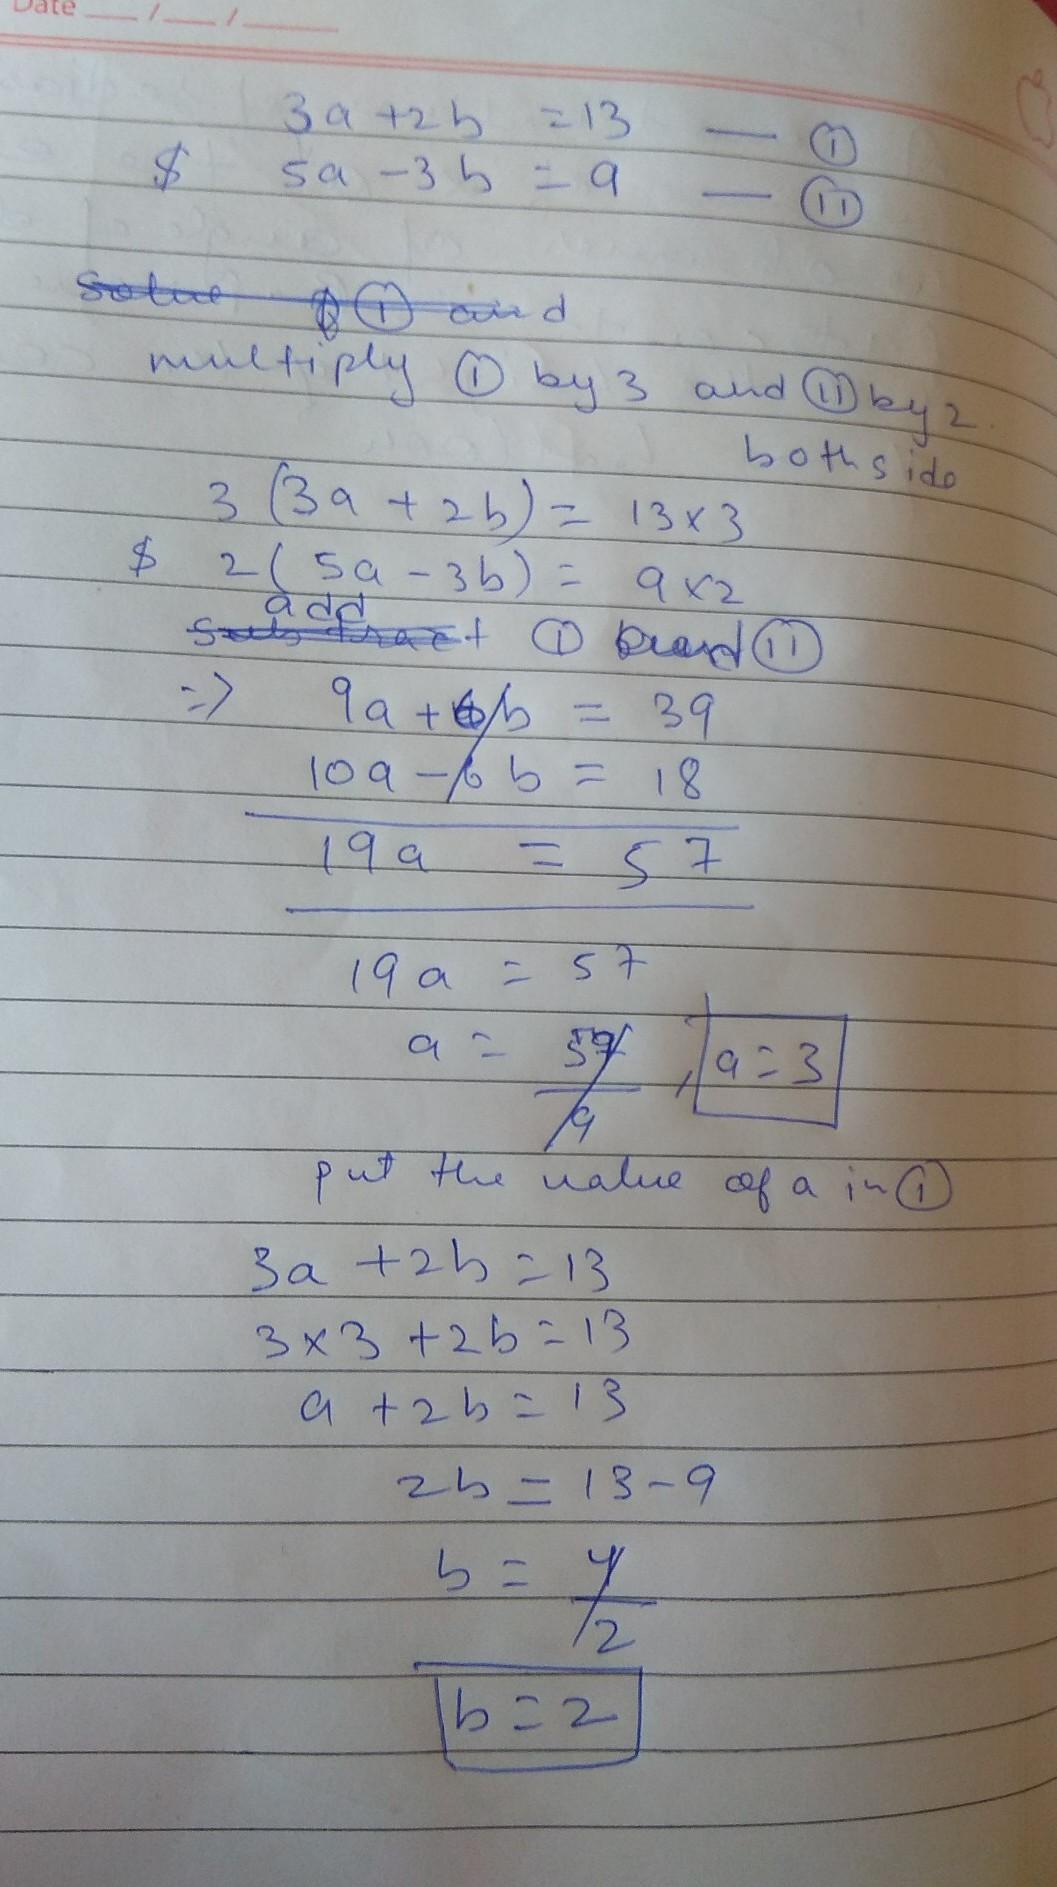 Date __/__/____
3a +2b = 13 — (I)
$ 5a -3b = 9 — (II)
solve (I) and
multiply (I) by 3 and (II) by 2.
both side
3 (3a + 2b) = 13 x 3
$ 2 ( 5a - 3b) = 9 x 2
add
subtract (I) and (II)
=> 9a + 6b = 39
10a - 6b = 18
19a = 57
19a = 57
a = 57/19 , a = 3
put the value of a in (I)
3a + 2b = 13
3 x 3 + 2b = 13
9 + 2b = 13
2b = 13 - 9
b = 4/2
b = 2